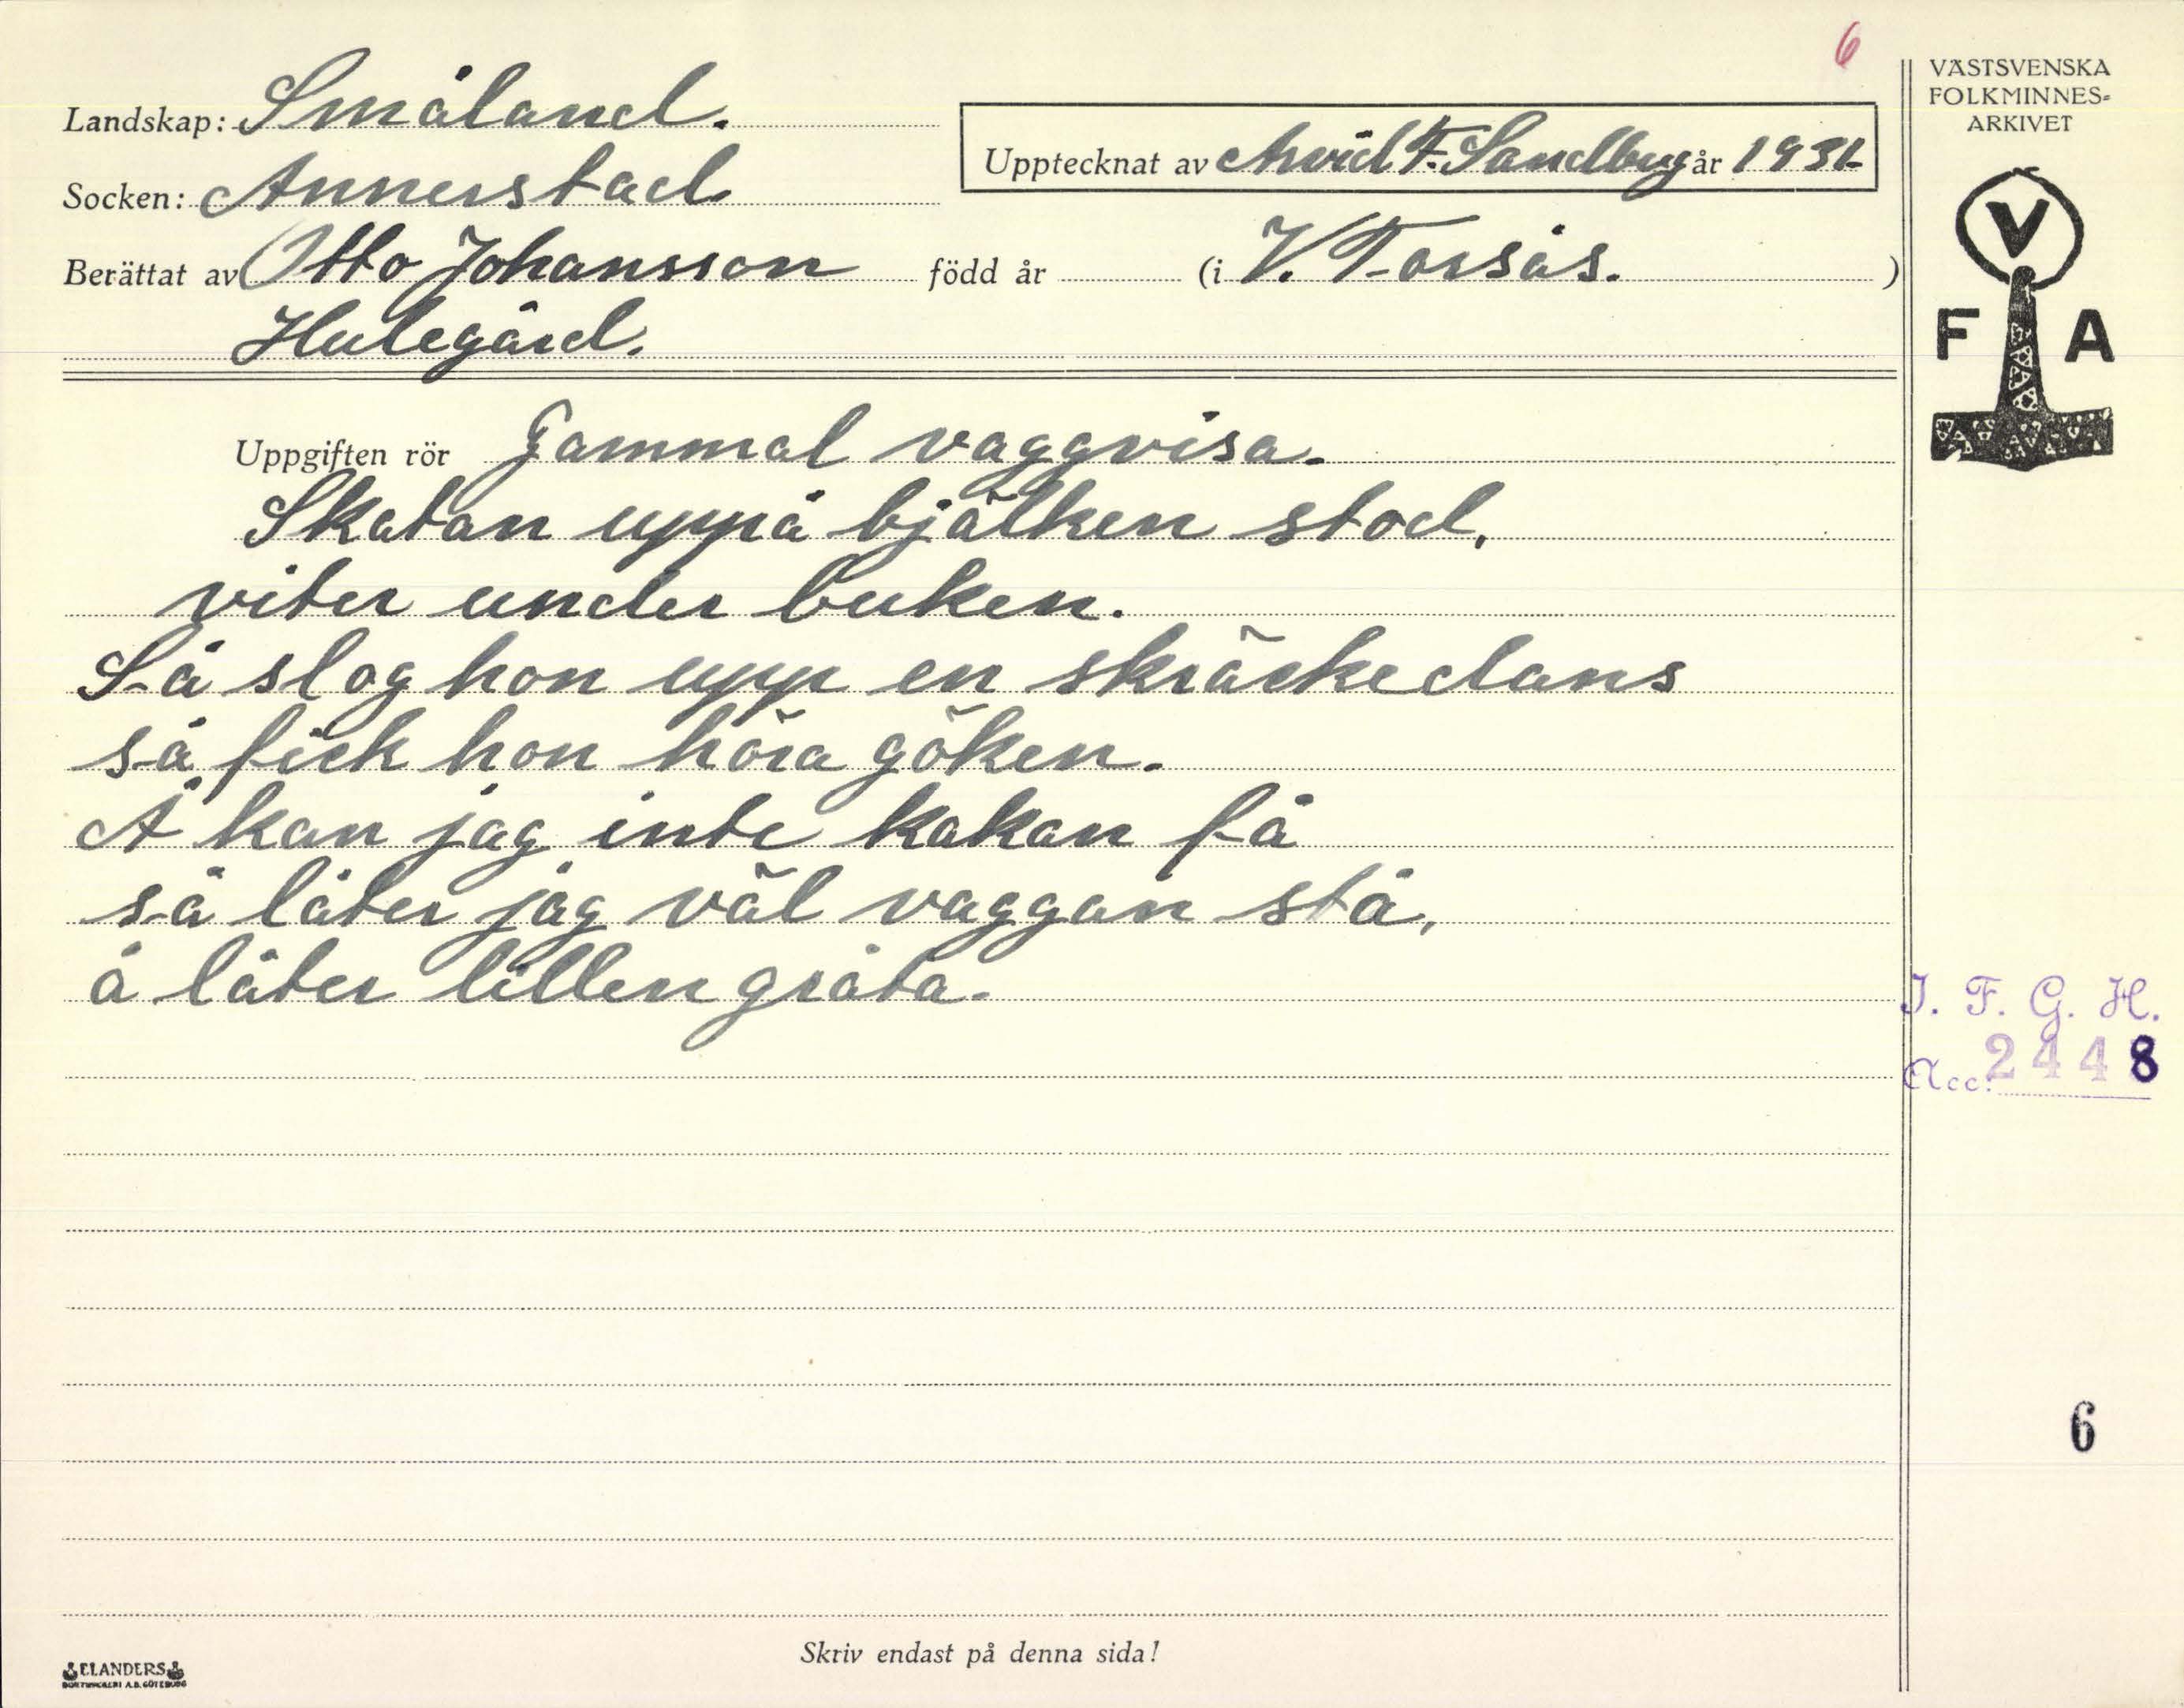 6
Landskap: Småland.
Upptecknat av Arvid F. Sandberg år 1931
Socken: Annerstad
Berättat av Otto Johansson född år (i V. Torsås. )
Hulegård.
VÄSTSVENSKA
FOLKMINNES-
ARKIVET
V
F A
Uppgiften rör Gammal vaggvisa.
Skatan uppå bjälken stod,
viter under buken.
Så slog hon upp en skräckedans
så fick hon höra göken.
Å kan jag inte kakan få
så låter jag väl vaggan stå,
å låter lillen gråta.
I. F. G. H.
Acc. 2448
6
Skriv endast på denna sida!
ELANDERS
BOKTRYCKERI A.B. GÖTEBORG